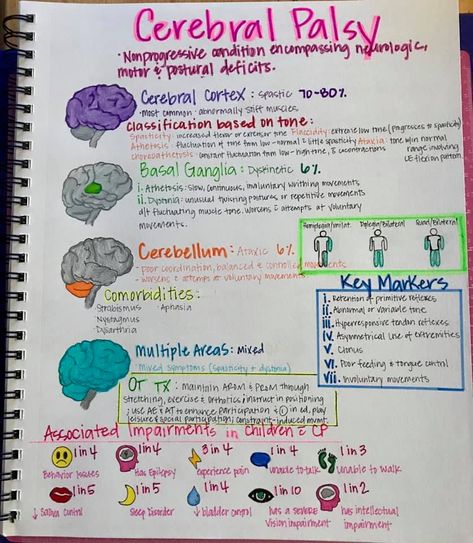 Cerebral Palsy
· Nonprogressive condition encompassing neurologic,
motor & postural deficits.
Cerebral Cortex: Spastic 70-80%
· most common · abnormally stiff muscles
Classification based on tone:
Spasticity: increased flexor or extensor tone Flaccidity: extreme low tone (progresses to spasticity)
Athetosis: fluctuation of tone from low-normal & little spasticity Ataxia: tone w/in normal
Choreoathetosis: constant fluctuation from low-high tone, & cocontractions range involving
UE flexion pattern
Basal Ganglia: Dyskinetic 6%
i. Athetosis: slow, continuous, involuntary writhing movements
ii. Dystonia: unusual twisting postures or repetitive movements
d/t fluctuating muscle tone. Worsens & attempts at voluntary
movements.
Hemiplegia/unilat. Diplegia/Bilateral Quad/Bilateral
Cerebellum: Ataxic 6%
- poor coordination, balanced & controlled movements
- worsens & attempts at voluntary movements
Comorbidities:
- Strabismus - Aphasia
- Nystagmus
- Dysarthria
Key Markers
i. Retention of primitive reflexes
ii. Abnormal or variable tone
iii. Hyperresponsive tendon reflexes
iv. Asymmetrical use of extremities
v. Clonus
vi. Poor feeding & tongue control
vii. Involuntary movements
Multiple Areas: Mixed
Mixed symptoms (spasticity & dystonia)
OT TX: maintain AROM & PROM through
stretching, exercise & orthotics; instruct in positioning
; use AE & AT to enhance participation & I in ed, play
leisure & social participation; constraint-induced mvmt.
Associated Impairments in Children c CP
1 in 4 1 in 4 3 in 4 1 in 4 1 in 3
Behavior Issues Has Epilepsy experience pain unable to talk unable to walk
1 in 5 1 in 5 1 in 4 1 in 10 1 in 2
↓ Saliva control Sleep Disorder ↓ bladder control has a severe has intellectual
vision impairment impairment